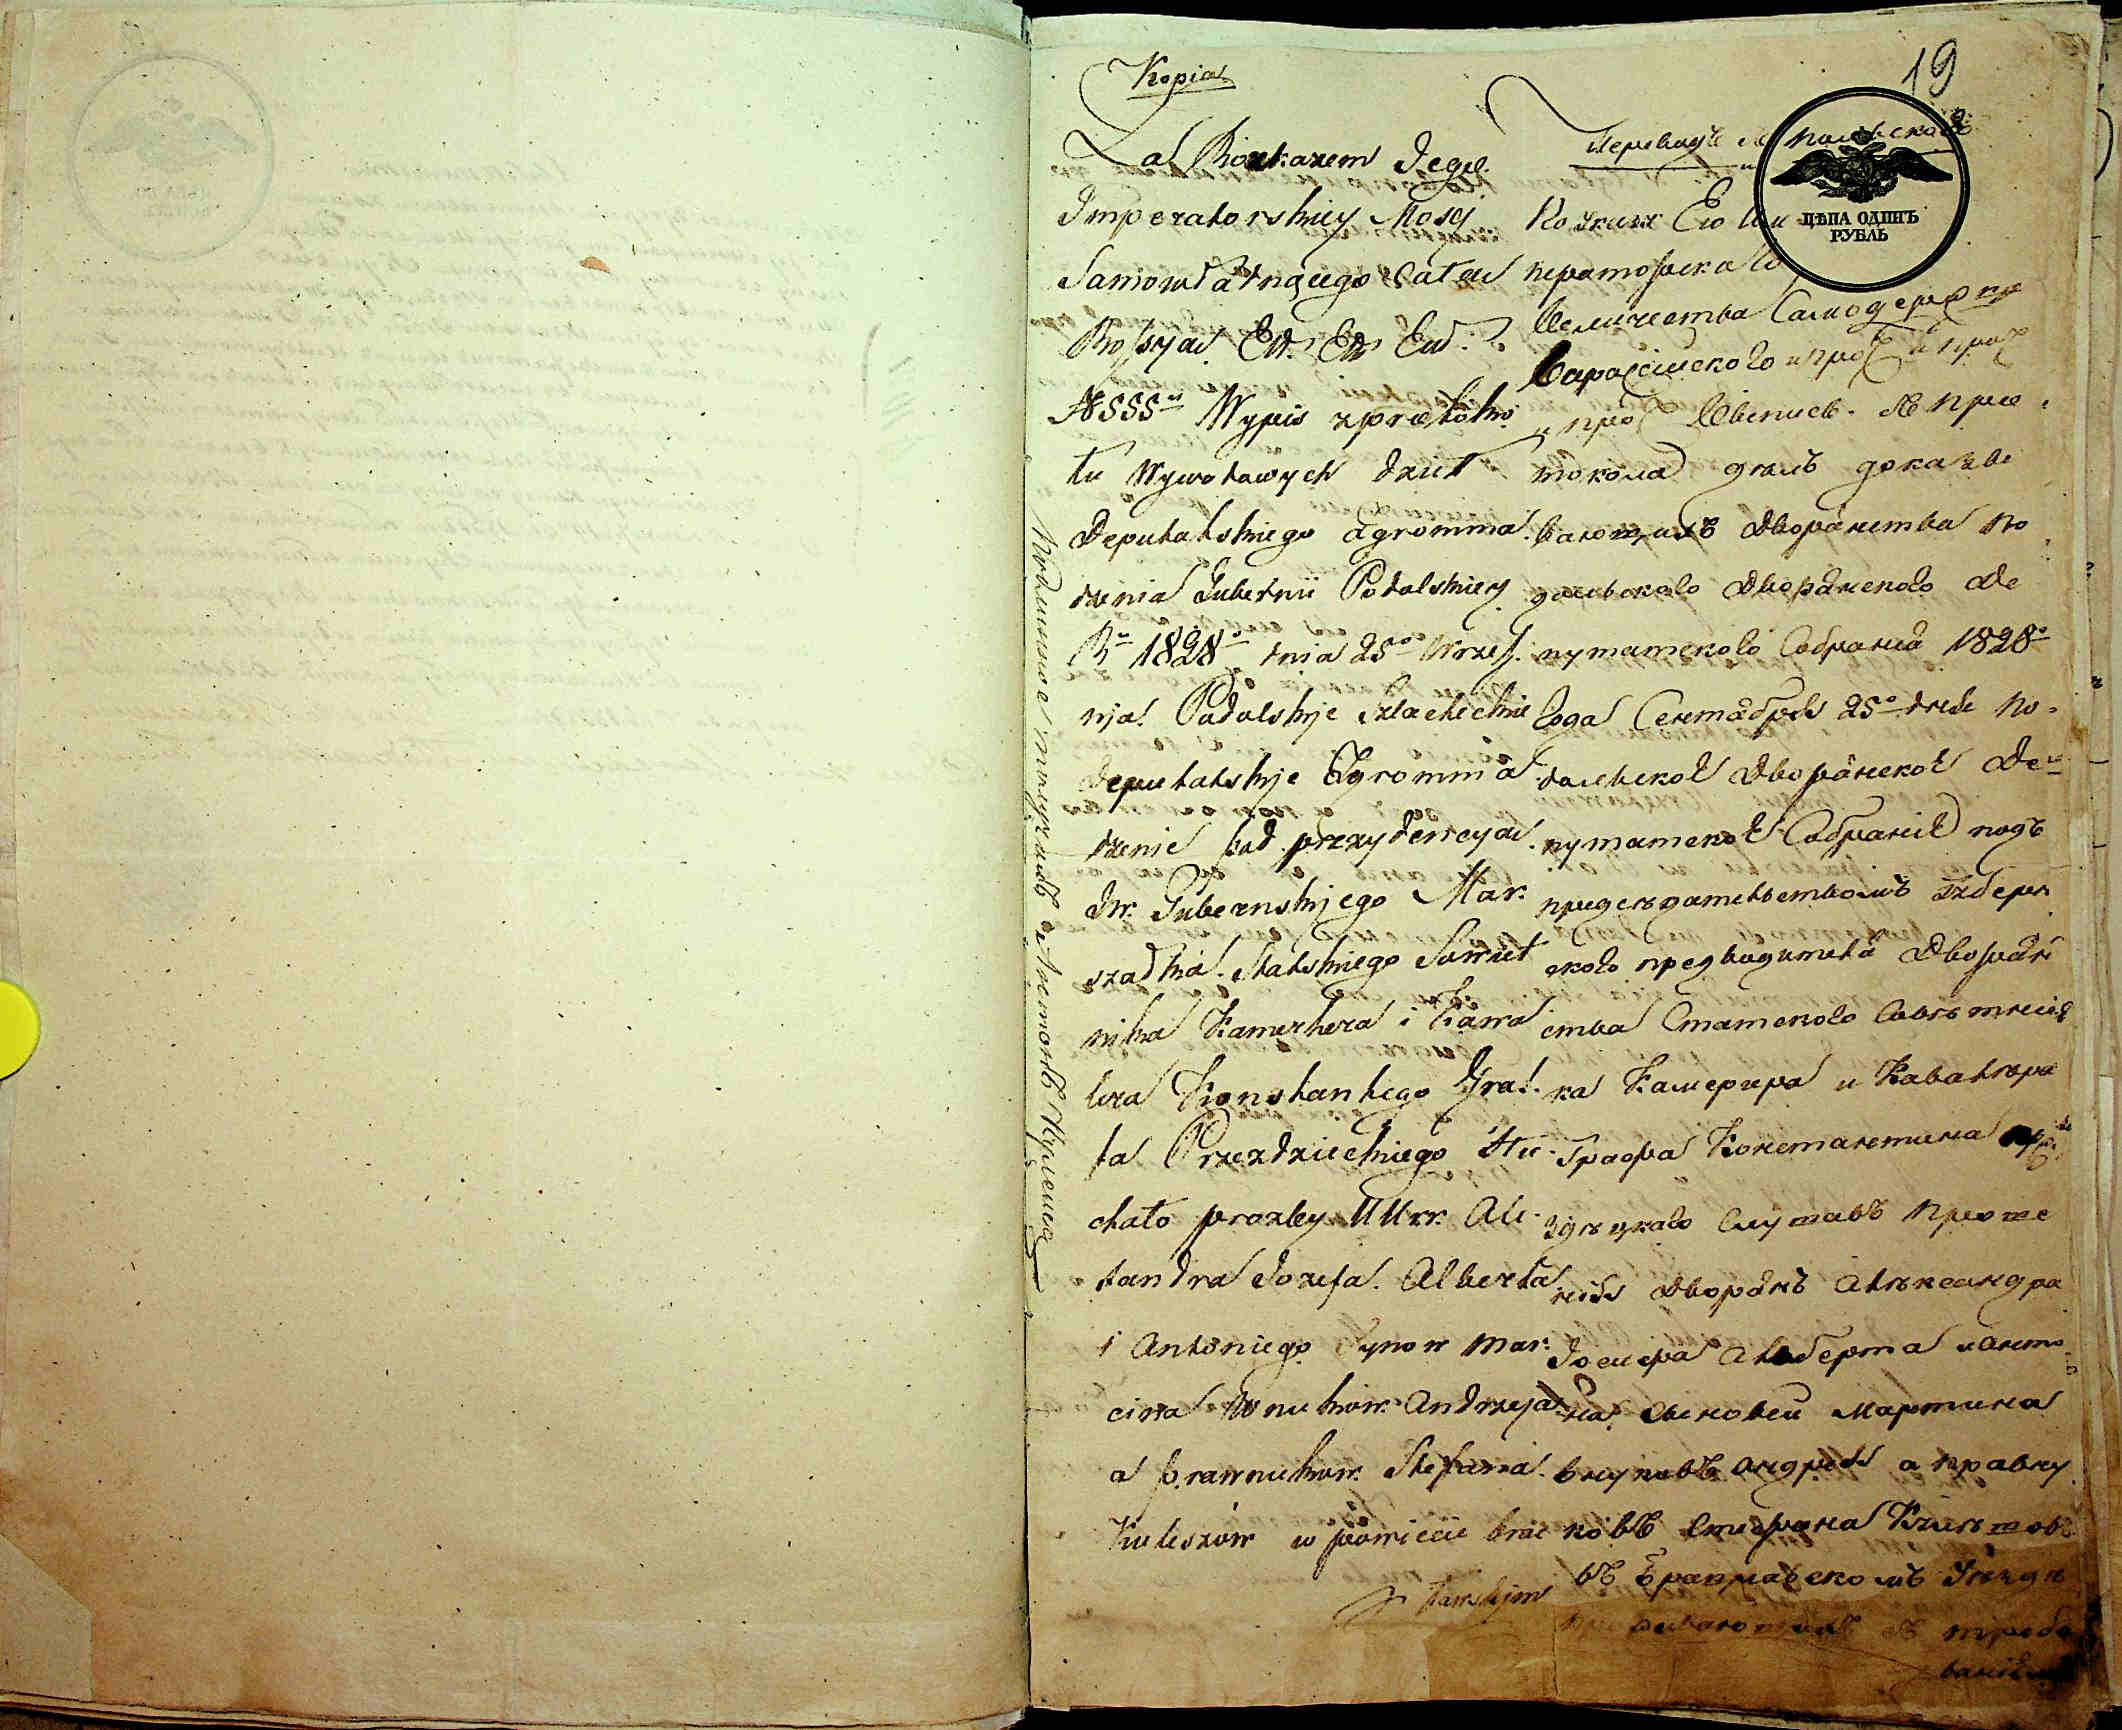 19
Kopia
Za Rozkazem Jego
Imperatorskiey Mosci
Samowładnącego Całą
Rossyą Etc Etc Etc
№ 555 Wypis z protokó
łu Wywodowych dzieł
Deputatskiego Zgroma
dzenia Gubernii Podolskiey
Rº 1828º dnia 25º Wrześ
nia Podolskje Szlacheckie
Deputatskje Zgroma
dzenie pod prezydencyą
Jw. Gubernskjego Mar
szałka Statskiego Sowiet
nika Kamerhera i Kawa
lera Konstantego Gra
fa Przezdzieckiego słu
chało prozby UUrr. Ale
xandra Jozefa Alberta
i Antoniego Synow Mar
cina Wnukow Andrzeja
a prawnukow Stefana
Kuleszów w powiecie Brac
ławskjm
Переводъ съ польскаго
ЦѢНА ОДИНЪ
РУБЛЬ
По указу Его Им
ператорскаго
Величества Самодержца
Всероссійского и проч и проч
и проч Выпись съ про
токола дѣлъ доказы
вающихъ Дворянства По
дольского Дворянского Де
путатского Собранія 1828º
года Сентября 25º дня По
дольское Дворянское Де
путатское Собраніе подъ
предсѣдательствомъ Губерн
ского предводителя Дворян
ства Статского Совѣтни
ка Камергера и Кавалера
Графа Константина Пр
зѣдзѣцкаго Слушавъ Проше
нія Дворянъ Александра
Іосифа Альберта и Анто
на Сыновей Мартина
внуковъ Андрея а правну
ковъ Стефана Кулѣшовъ
въ Брацлавскомъ Уѣздѣ
проживающихъ съ требо
ваніемъ
Подлинное читалъ Антонъ Кулеша